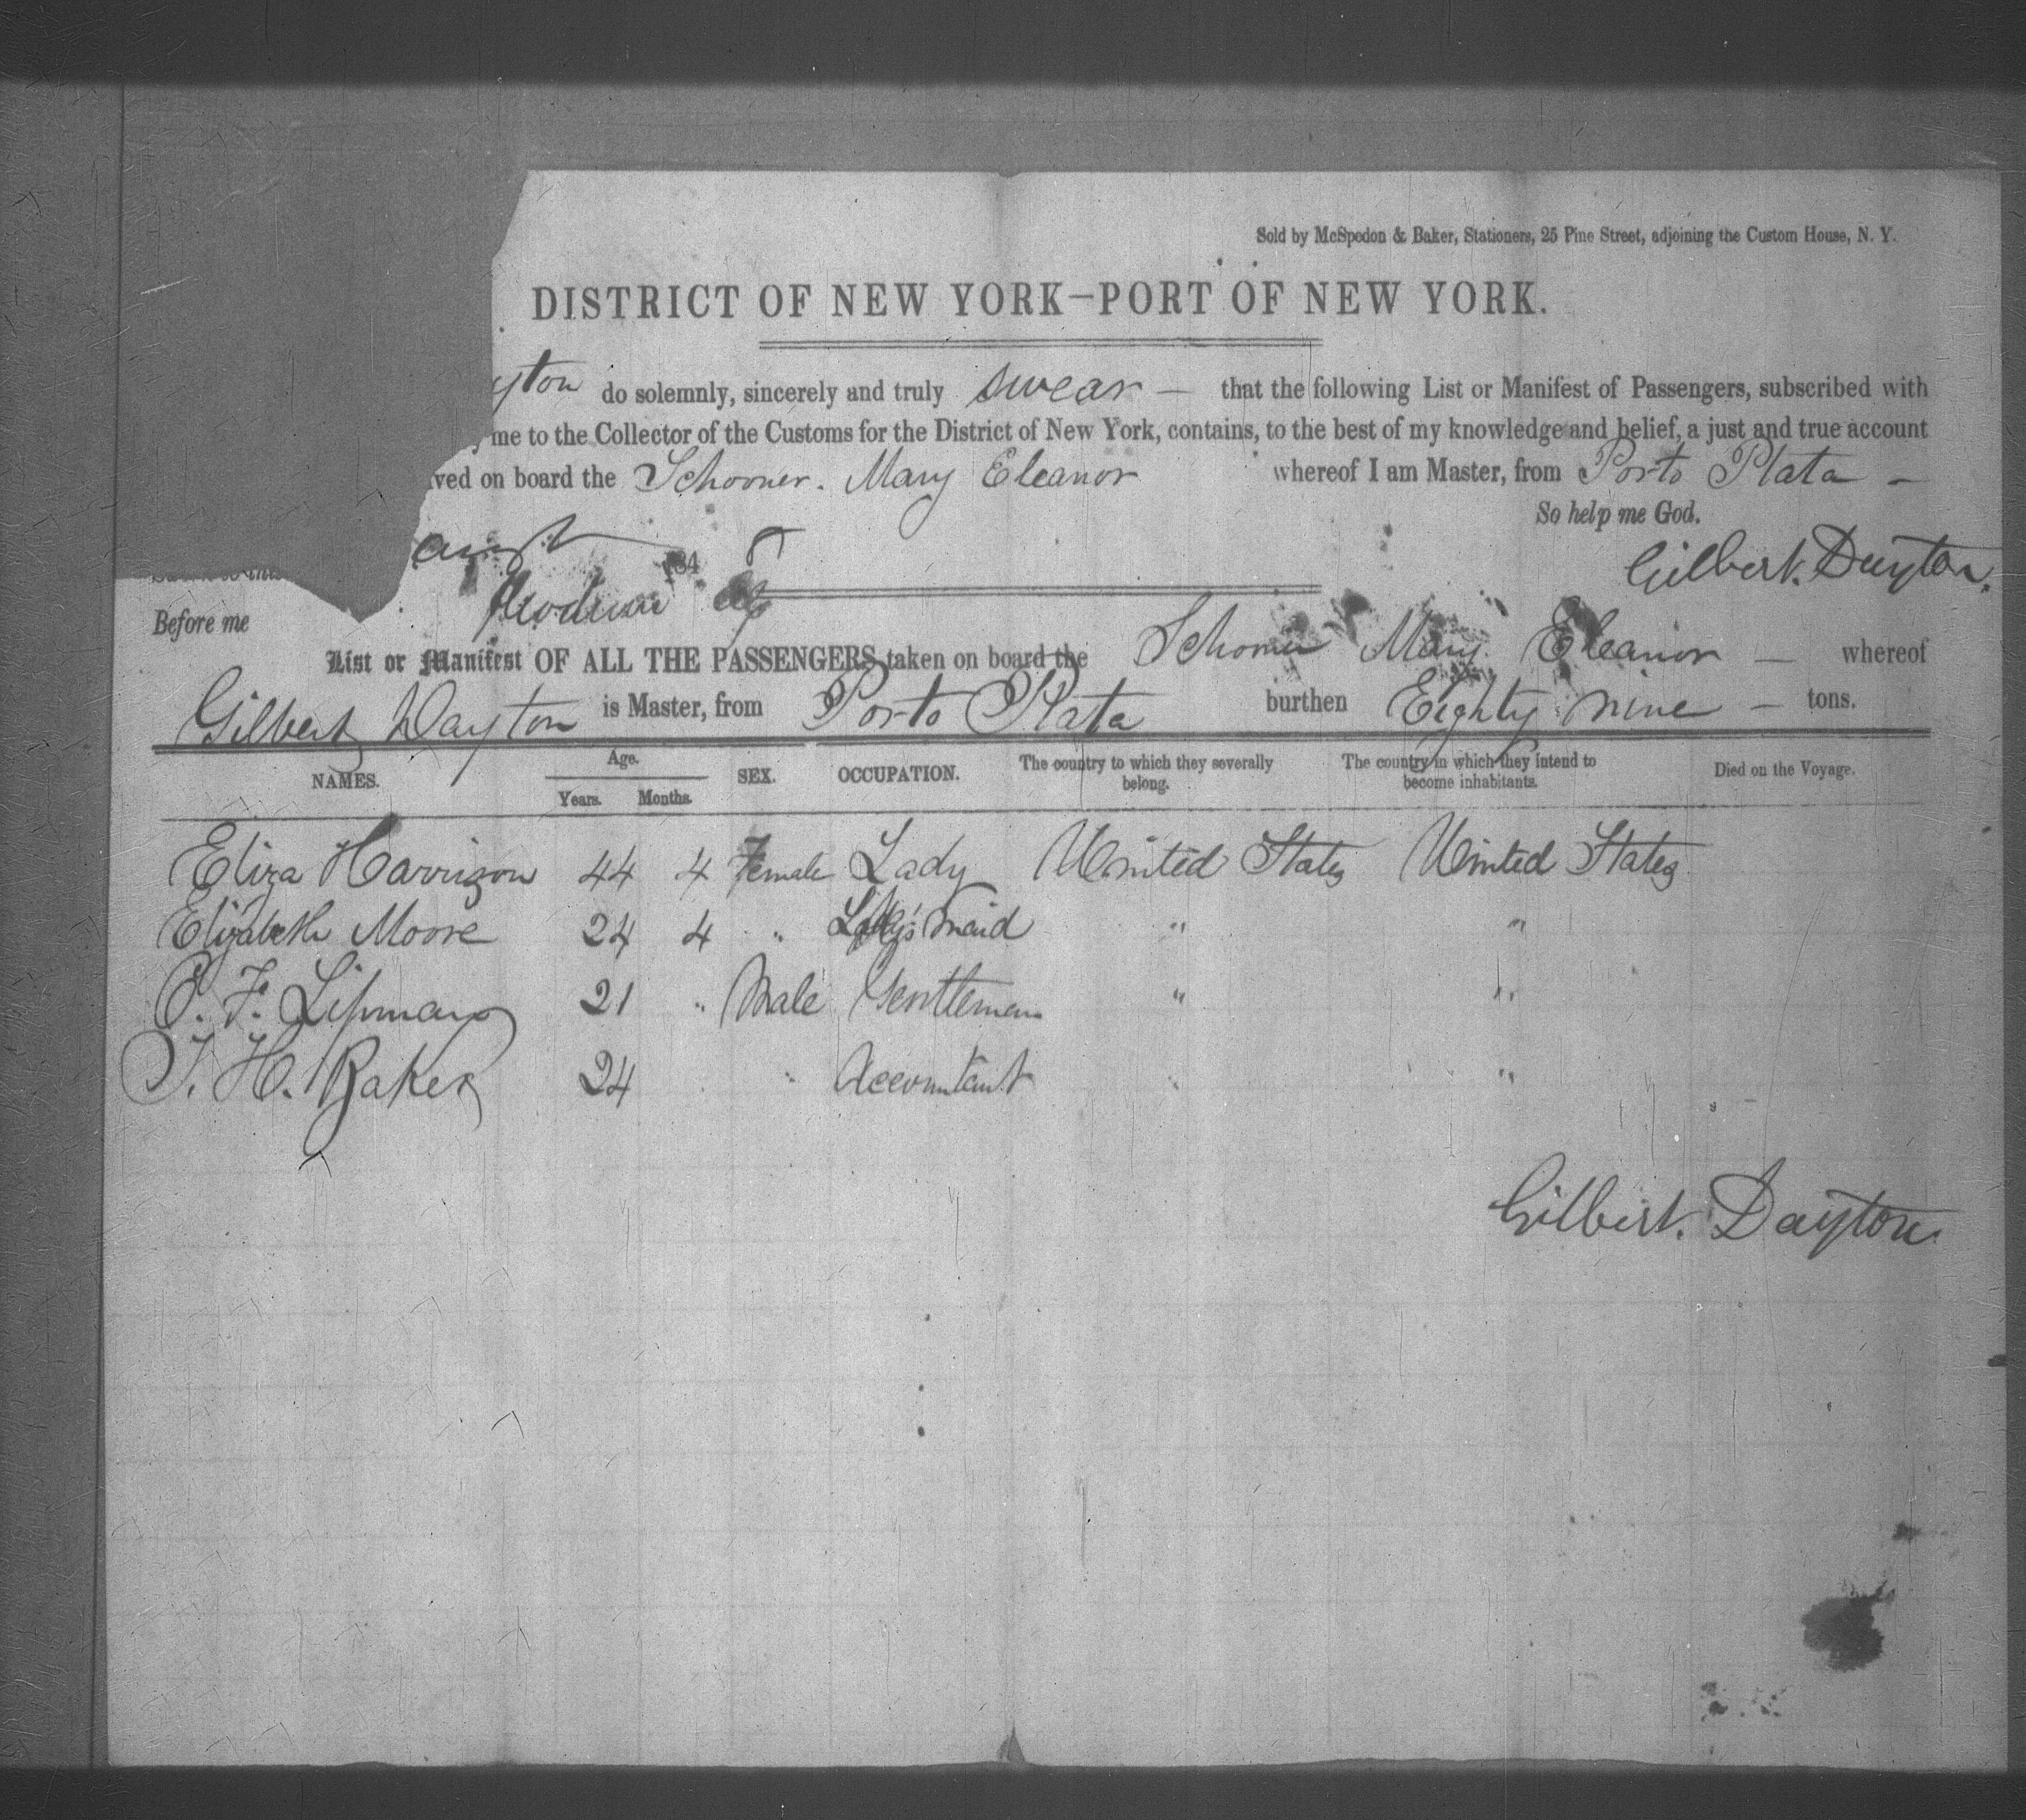 Sold by McSpedon & Baker, Stationers, 25 Pine Street, adjoining the Custom House, N. Y.
DISTRICT OF NEW YORK—PORT OF NEW YORK.
yton do solemnly, sincerely and truly swear — that the following List or Manifest of Passengers, subscribed with
me to the Collector of the Customs for the District of New York, contains, to the best of my knowledge and belief, a just and true account
ved on board the Schooner. Mary Eleanor whereof I am Master, from Porto Plata —
So help me God.
184 8
Gilbert. Dayton.
Before me
List or Manifest OF ALL THE PASSENGERS taken on board the Schooner Mary Eleanor — whereof
Gilbert Dayton is Master, from Porto Plata burthen Eighty nine — tons.
NAMES. Age. Years. Months. SEX. OCCUPATION. The country to which they severally belong. The country in which they intend to become inhabitants. Died on the Voyage.
Eliza Harrison 44 4 Female Lady United States United States
Elizabeth Moore 24 4 " Lady's Maid " "
C. F. Lipman 21 " Male Gentleman " "
T. H. Baker 24 " Accountant " "
Gilbert. Dayton.